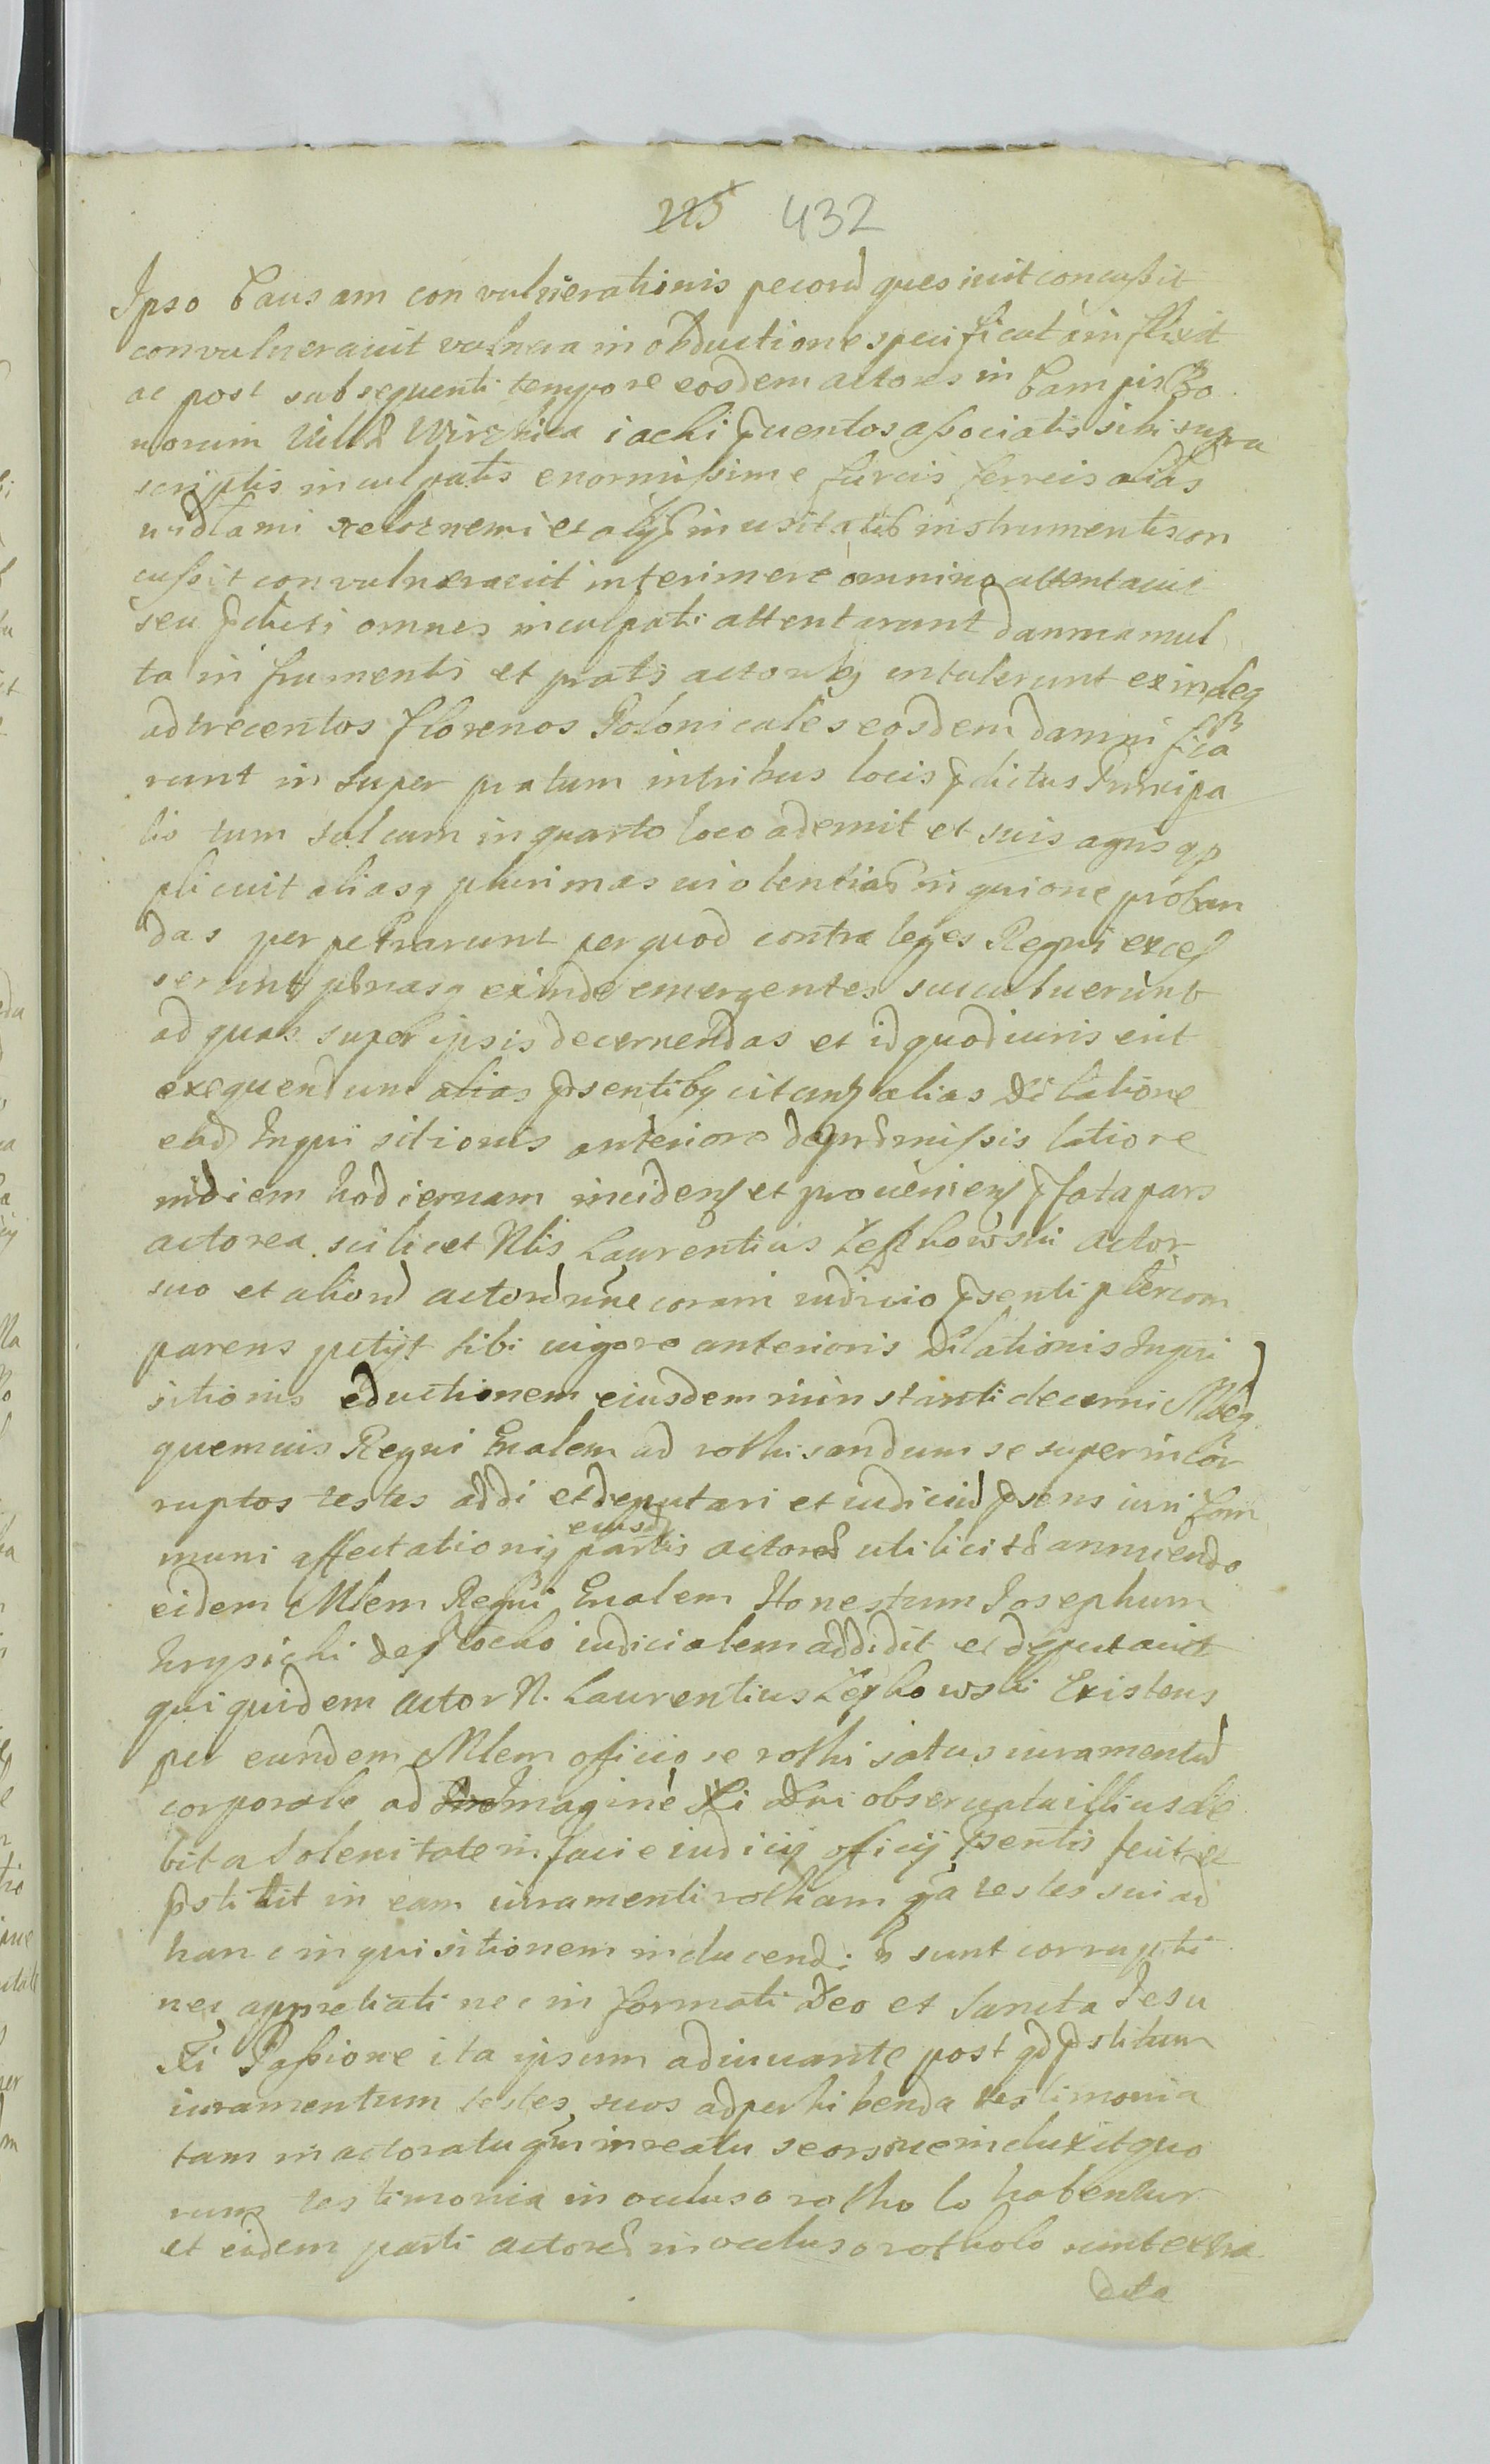 225 432
Ipso Causam convulnerationis pecord quesivit concussit
convulneravit vulnera in obductione specificat inflixit
ac post subsequenti tempore eosdem actores in Campis Bo
norum Villæ Wirzbica iachi fuentos associatis sibi supra
scriptis inculpatis enormissime furcis ferreis alias
widlami zelaznemi et alijs inusitatis instrumentis con
cussit convulneravit interimere omnino attentavit
seu pdicti omnes inculpati attentarunt damna mul
ta in frumentis et pratis actoribq intulerunt exindeq
ad trecentos florenos Polonicales eosdem damnifica
runt insuper pratum in tribus locis pdictus Principa
lis tum sulcum in quarto loco ademit et suis agris ap
plicuit aliasq plurimas violentias in quisione proban
das perpetrarunt per quod contra leges Regni exces
serunt pænasq exinde emergentes succubuerunt
ad quas super ipsis decernendas et id quod iuris erit
exequendum alias psentibq citant alias Dilatione
ead Inquisitionis anteriore de præmissis latiore
in diem hodiernam inciden et provenien pfata pars
actorea scilicet Nlis Laurentius Leskowski actor
suo et aliord actord nne coram iudicio psenti pter com
parens petijt sibi vigore anterioris Dilationis Inqui
sitionis eductionem eiusdem in instanti decerni Mlegq
quemvis Regni Gnalem ad rothisandum se super incor
ruptos testes addi et deputari et iudiciu psens iuri com
muni affectationiq eiusd partis actoreæ uti licitæ annuendo
eidem Mlem Regni Gnalem Honestum Josephum
Krysicki de Płocko iudicialem addidit et deputavit
qui quidem actor N. Laurentius Leskowski Existens
per eundem Mlem officiose rothisatus iuramentu
corporale ad Imaginé Xi Dni observata illius de
bita solenitate in facie iudicij officij psentis fecit et
pstitit in eam iuramenti rotham qa testes sui ad
hanc inquisitionem inducendi ñ sunt corrupti
nec appretiati nec informati Deo et Sancta Jesu
Xi Passione ita ipsum adiuvante post qd pstitum
iuramentum testes suos ad perhibenda testimonia
tam in actoratu qm in reatu seorsive induxit quo
rum testimonia in occluso rotholo habentur
et eidem parti actoreæ in occluso rotholo sunt extra
dita